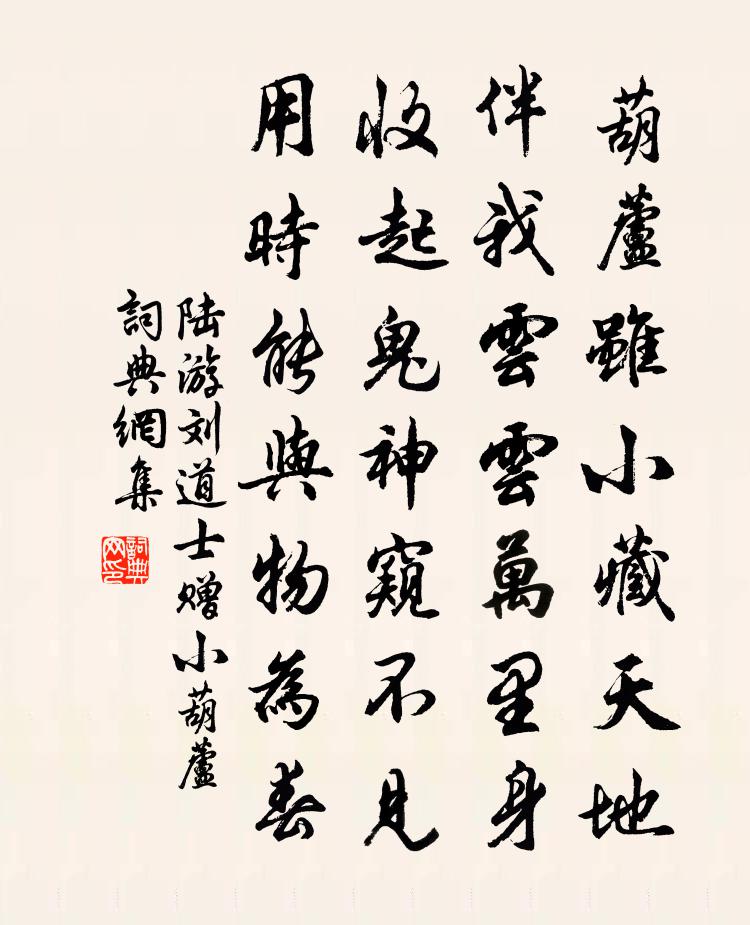 葫蘆雖小藏天地
伴我雲雲萬里身
收起鬼神窺不見
用時能與物為春
陆游刘道士赠小葫蘆
詞典網集
詞典网印